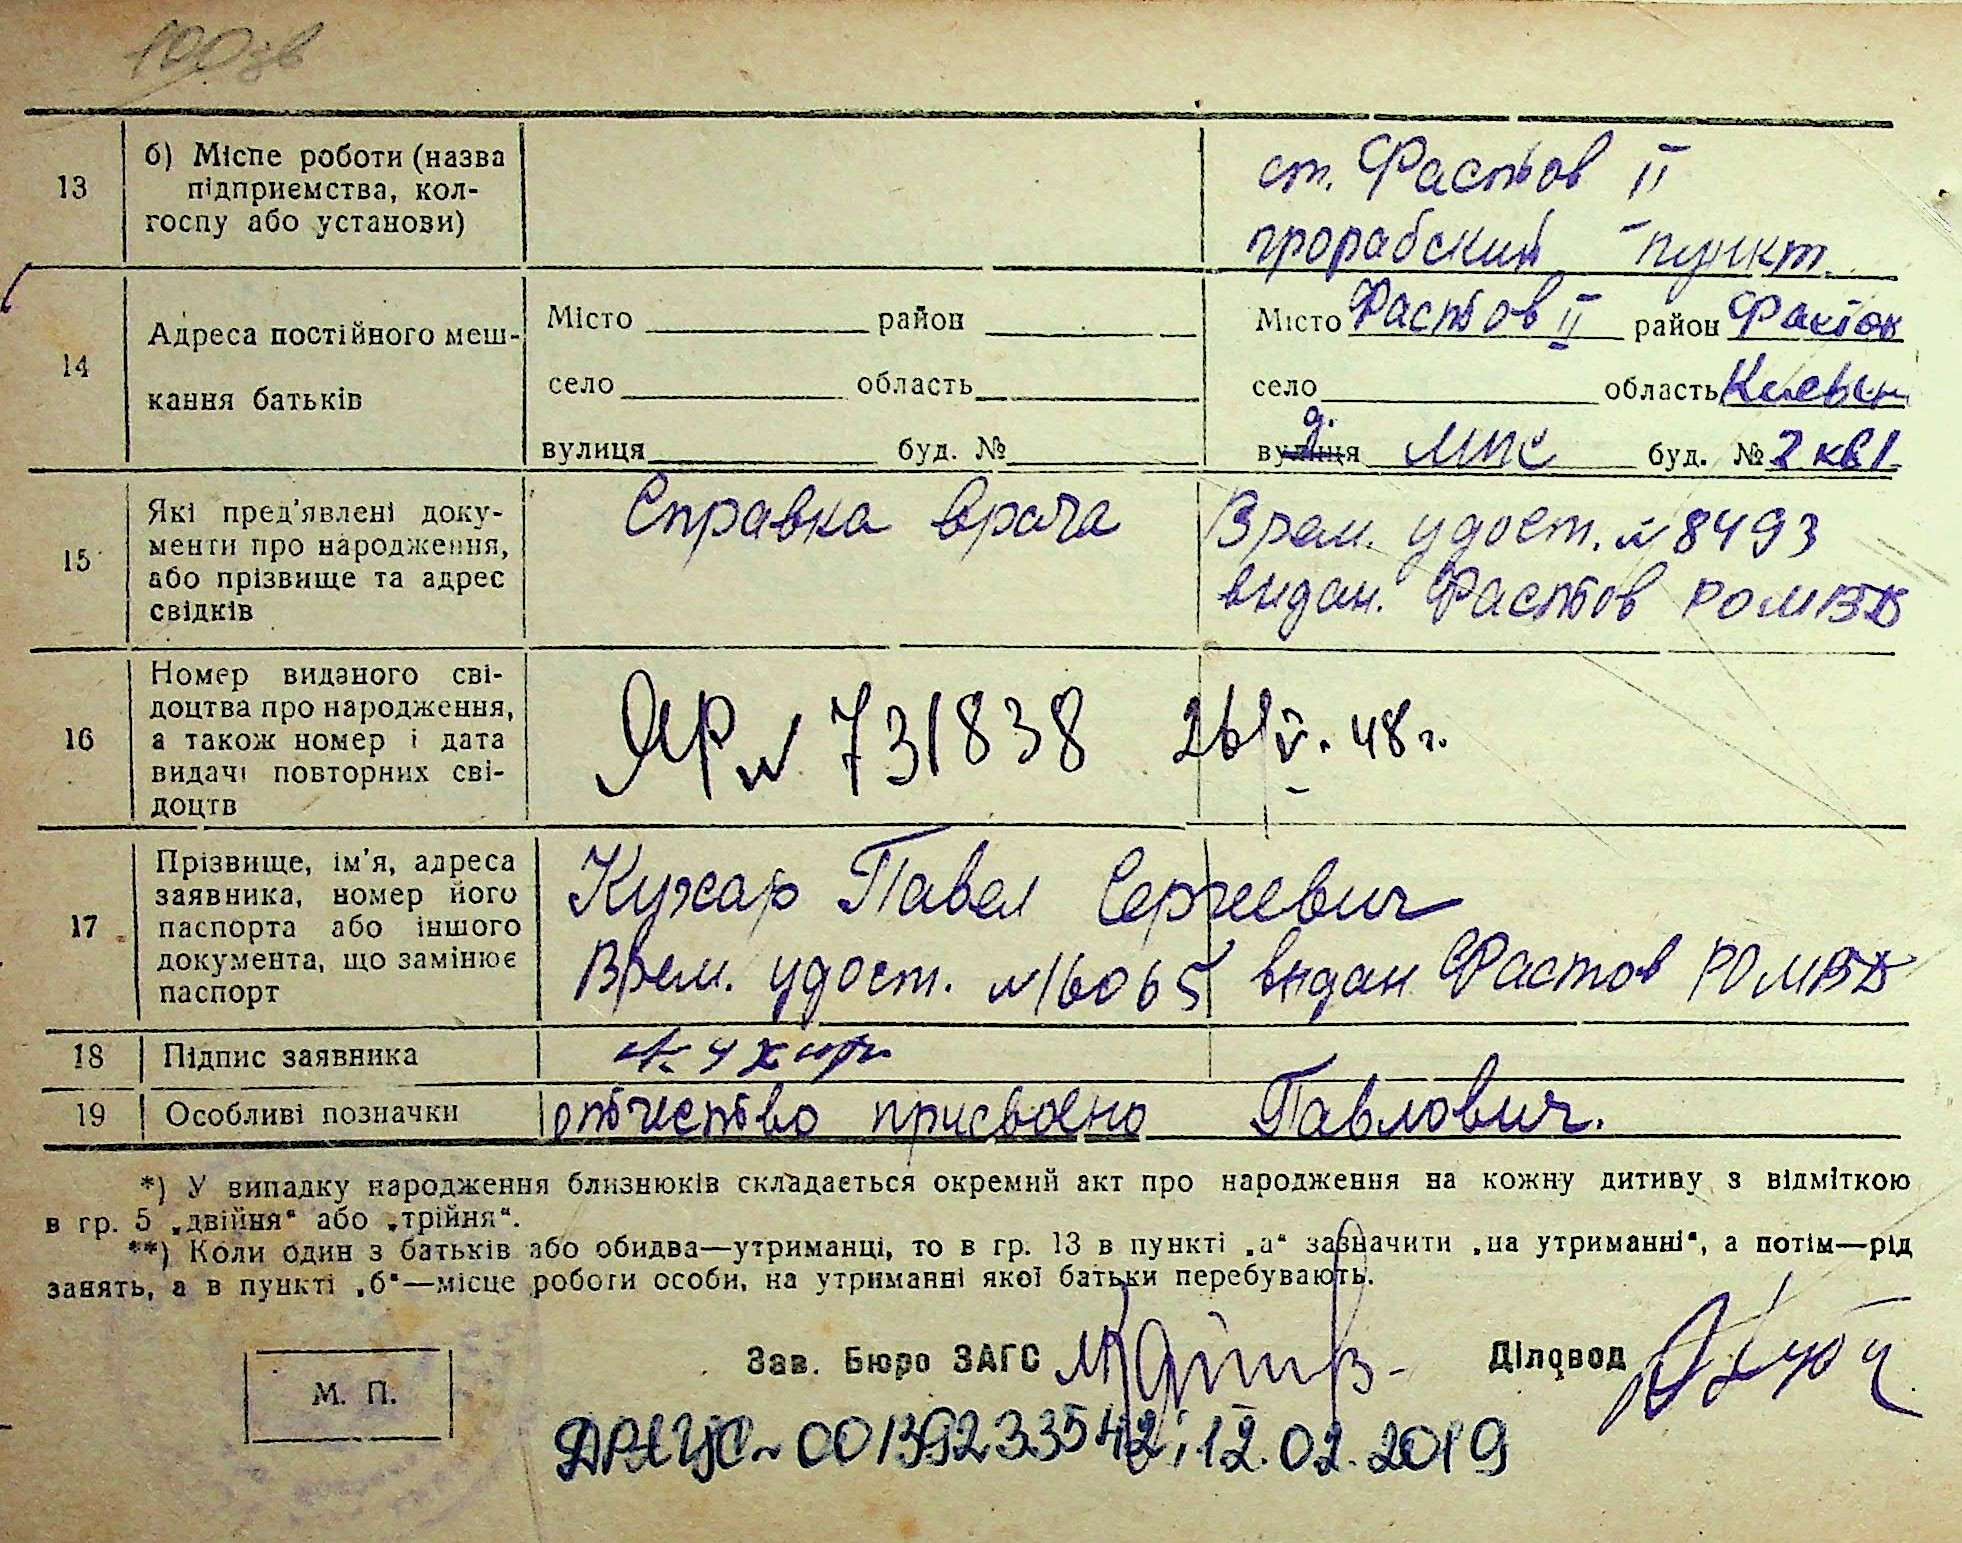 100 зв
13
б) Місце роботи (назва
підприємства, кол-
госпу або установи)
ст. Фастов II
прорабский пункт.
14
Адреса постійного меш-
кання батьків
Місто район
село область
вулиця буд. №
Місто Фастов II район Фастов
село область Киевск
вулиця д. МПС буд. № 2 кв 1
15
Які пред'явлені доку-
менти про народження,
або прізвище та адрес
свідків
Справка врача
Врем. удост. № 8493
выдан. Фастов РОМВД
16
Номер виданого сві-
доцтва про народження,
а також номер і дата
видачі повторних сві-
доцтв
ЯР № 731838 26/V. 48 г.
17
Прізвище, ім'я, адреса
заявника, номер його
паспорта або іншого
документа, що замінює
паспорт
Кухар Павел Сергеевич
Врем. удост. № 16065 выдан Фастов РОМВД
18 Підпис заявника
19 Особливі позначки отчество присвоено Павлович.
*) У випадку народження близнюків складається окремий акт про народження на кожну дитину з відміткою
в гр. 5 „двійня“ або „трійня“.
**) Коли один з батьків або обидва—утриманці, то в гр. 13 в пункті „а“ зазначити „на утриманні“, а потім—рід
занять, а в пункті „б“—місце роботи особи, на утриманні якої батьки перебувають.
Зав. Бюро ЗАГС Діловод
М. П.
ДРАЦС ~ 00139233542; 12.02.2019